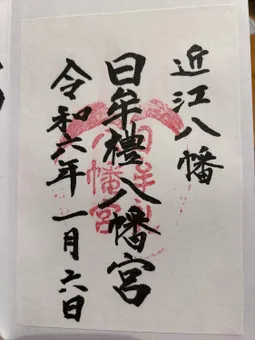 近江八幡
日牟禮八幡宮
令和六年一月六日
日牟禮
八幡宮